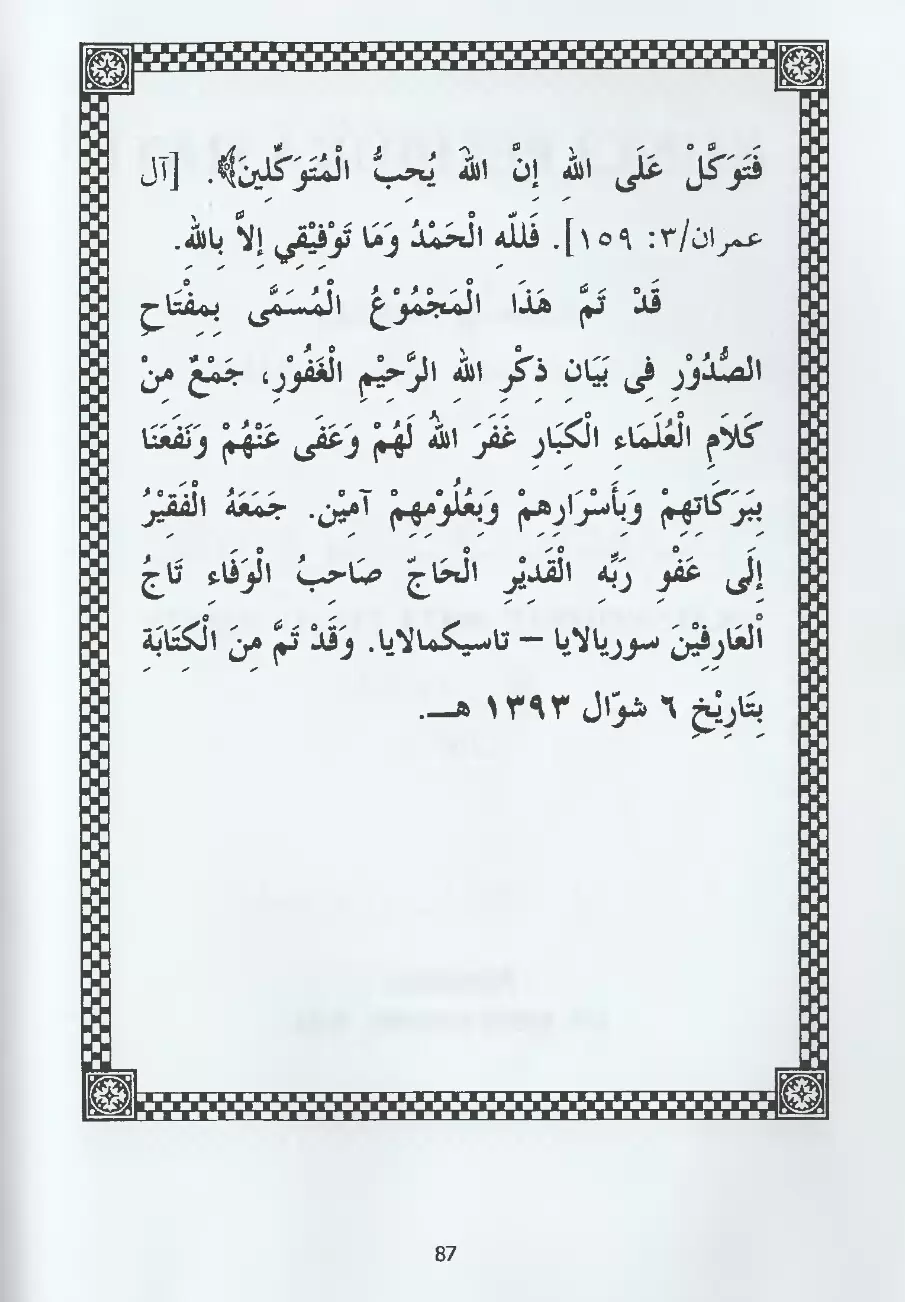 فَتَوَكَّلْ عَلَى اللهِ إِنَّ اللهَ يُحِبُّ الْمُتَوَكِّلِينَ﴾. [آل
عمران/٣: ١٥٩]. فَلِلّٰهِ الْحَمْدُ وَمَا تَوْفِيْقِي إِلاَّ بِاللهِ.
قَدْ تَمَّ هَذَا الْمَجْمُوْعُ الْمُسَمَّى بِمِفْتَاحِ
الصُّدُوْرِ فِى بَيَانِ ذِكْرِ اللهِ الرَّحِيْمِ الْغَفُوْرِ، جَمْعٌ مِنْ
كَلاَمِ الْعُلَمَاءِ الْكِبَارِ غَفَرَ اللهُ لَهُمْ وَعَفَى عَنْهُمْ وَنَفَعَنَا
بِبَرَكَاتِهِمْ وَبِأَسْرَارِهِمْ وَبِعُلُوْمِهِمْ آمِيْن. جَمَعَهُ الْفَقِيْرُ
إِلَى عَفْوِ رَبِّهِ الْقَدِيْرِ الْحَاجّ صَاحِبُ الْوَفَاءِ تَاجُ
الْعَارِفِيْن سورياالايا – تاسيكمالايا. وَقَدْ تَمَّ مِنَ الْكِتَابَةِ
بِتَارِيْخِ ٦ شوّال ١٣٩٣ هـ.
87